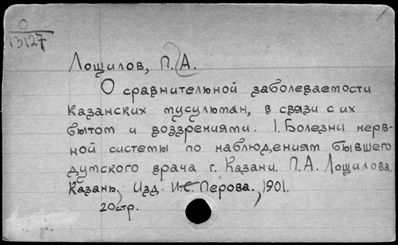 О
13127
Лощилов, П. А.
О сравнительной заболеваемости
казанских мусульман, в связи с их
бытом и воззрениями. 1. Болезни нерв-
ной системы по наблюдениям бывшего
думского врача г. Казани П. А. Лощилова.
Казань, Изд. Перова, 1901.
20 стр.